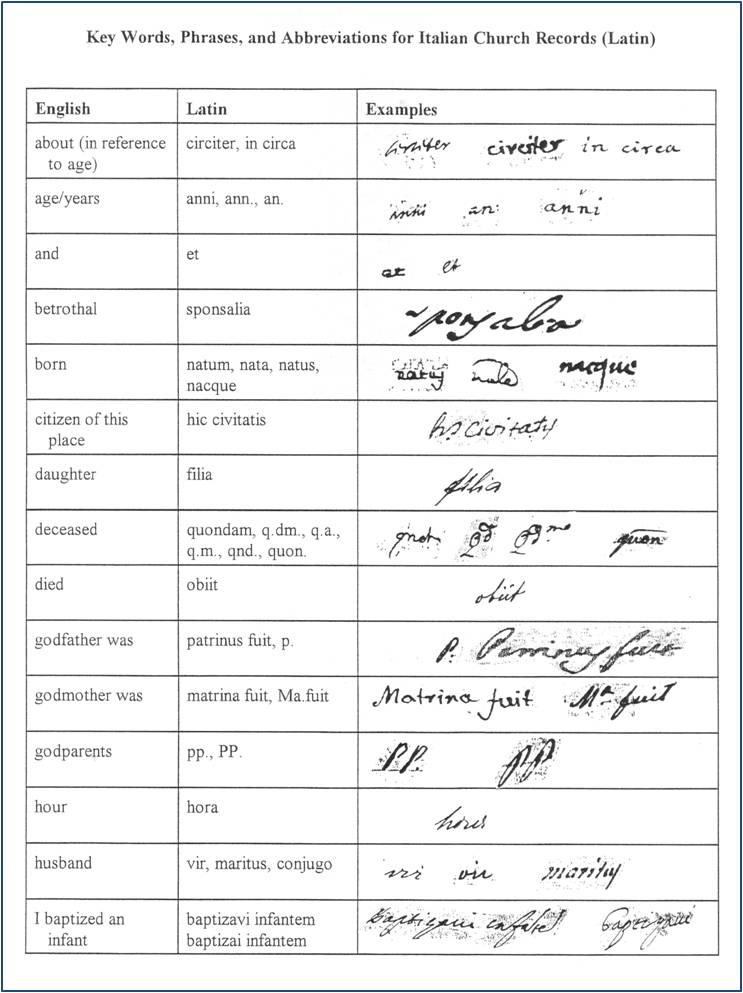 Key Words, Phrases, and Abbreviations for Italian Church Records (Latin)
English Latin Examples
about (in reference circiter, in circa circiter circiter in circa
to age)
age/years anni, ann., an. anni an: anni
and et et et
betrothal sponsalia sponsalia
born natum, nata, natus, natus nacque
nacque
citizen of this hic civitatis civitatis
place
daughter filia filia
deceased quondam, q.dm., q.a., quon
q.m., qnd., quon.
died obiit obiit
godfather was patrinus fuit, p. P. fuit
godmother was matrina fuit, Ma.fuit Matrina fuit Ma fuit
godparents pp., PP. P.P. PP
hour hora hora
husband vir, maritus, conjugo vir vir maritus
I baptized an baptizavi infantem
infant baptizai infantem